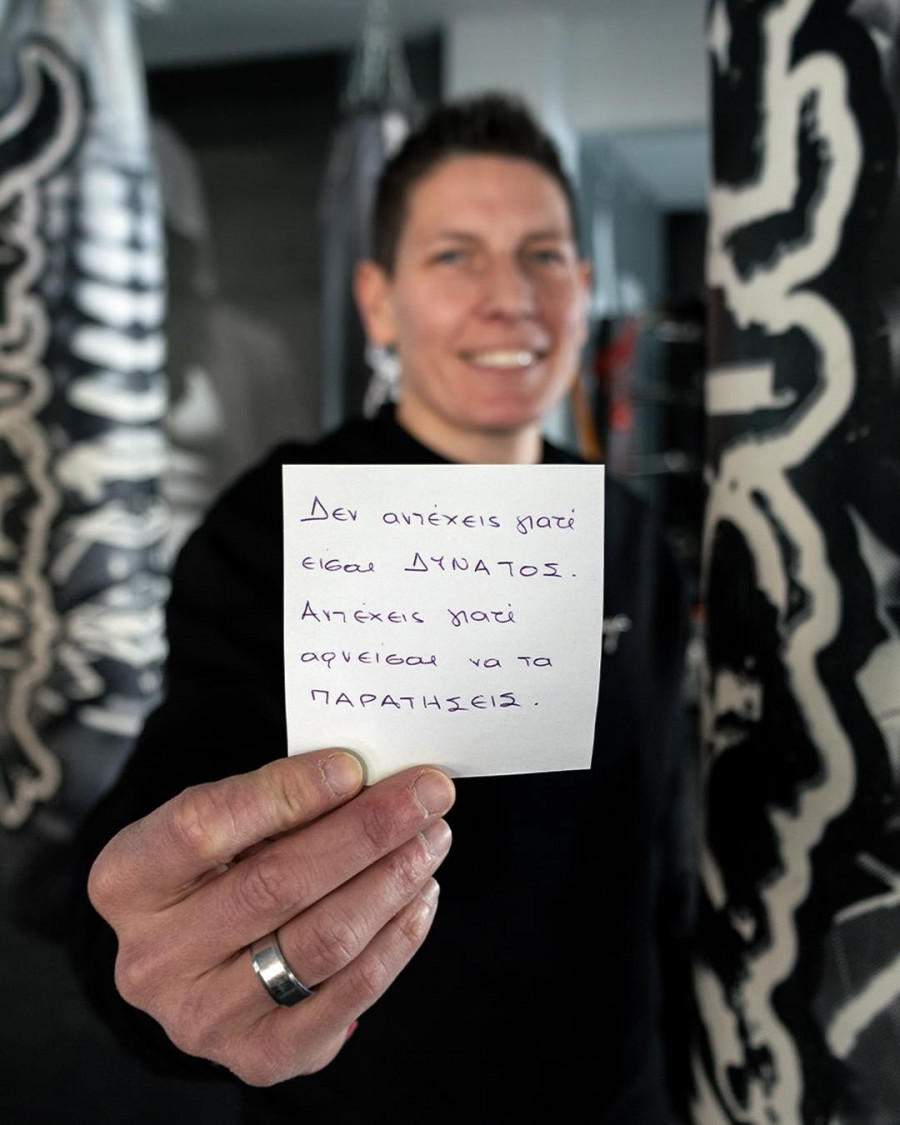 Δεν αντέχεις γιατί
είσαι ΔΥΝΑΤΟΣ.
Αντέχεις γιατί
αρνείσαι να τα
ΠΑΡΑΤΗΣΕΙΣ.